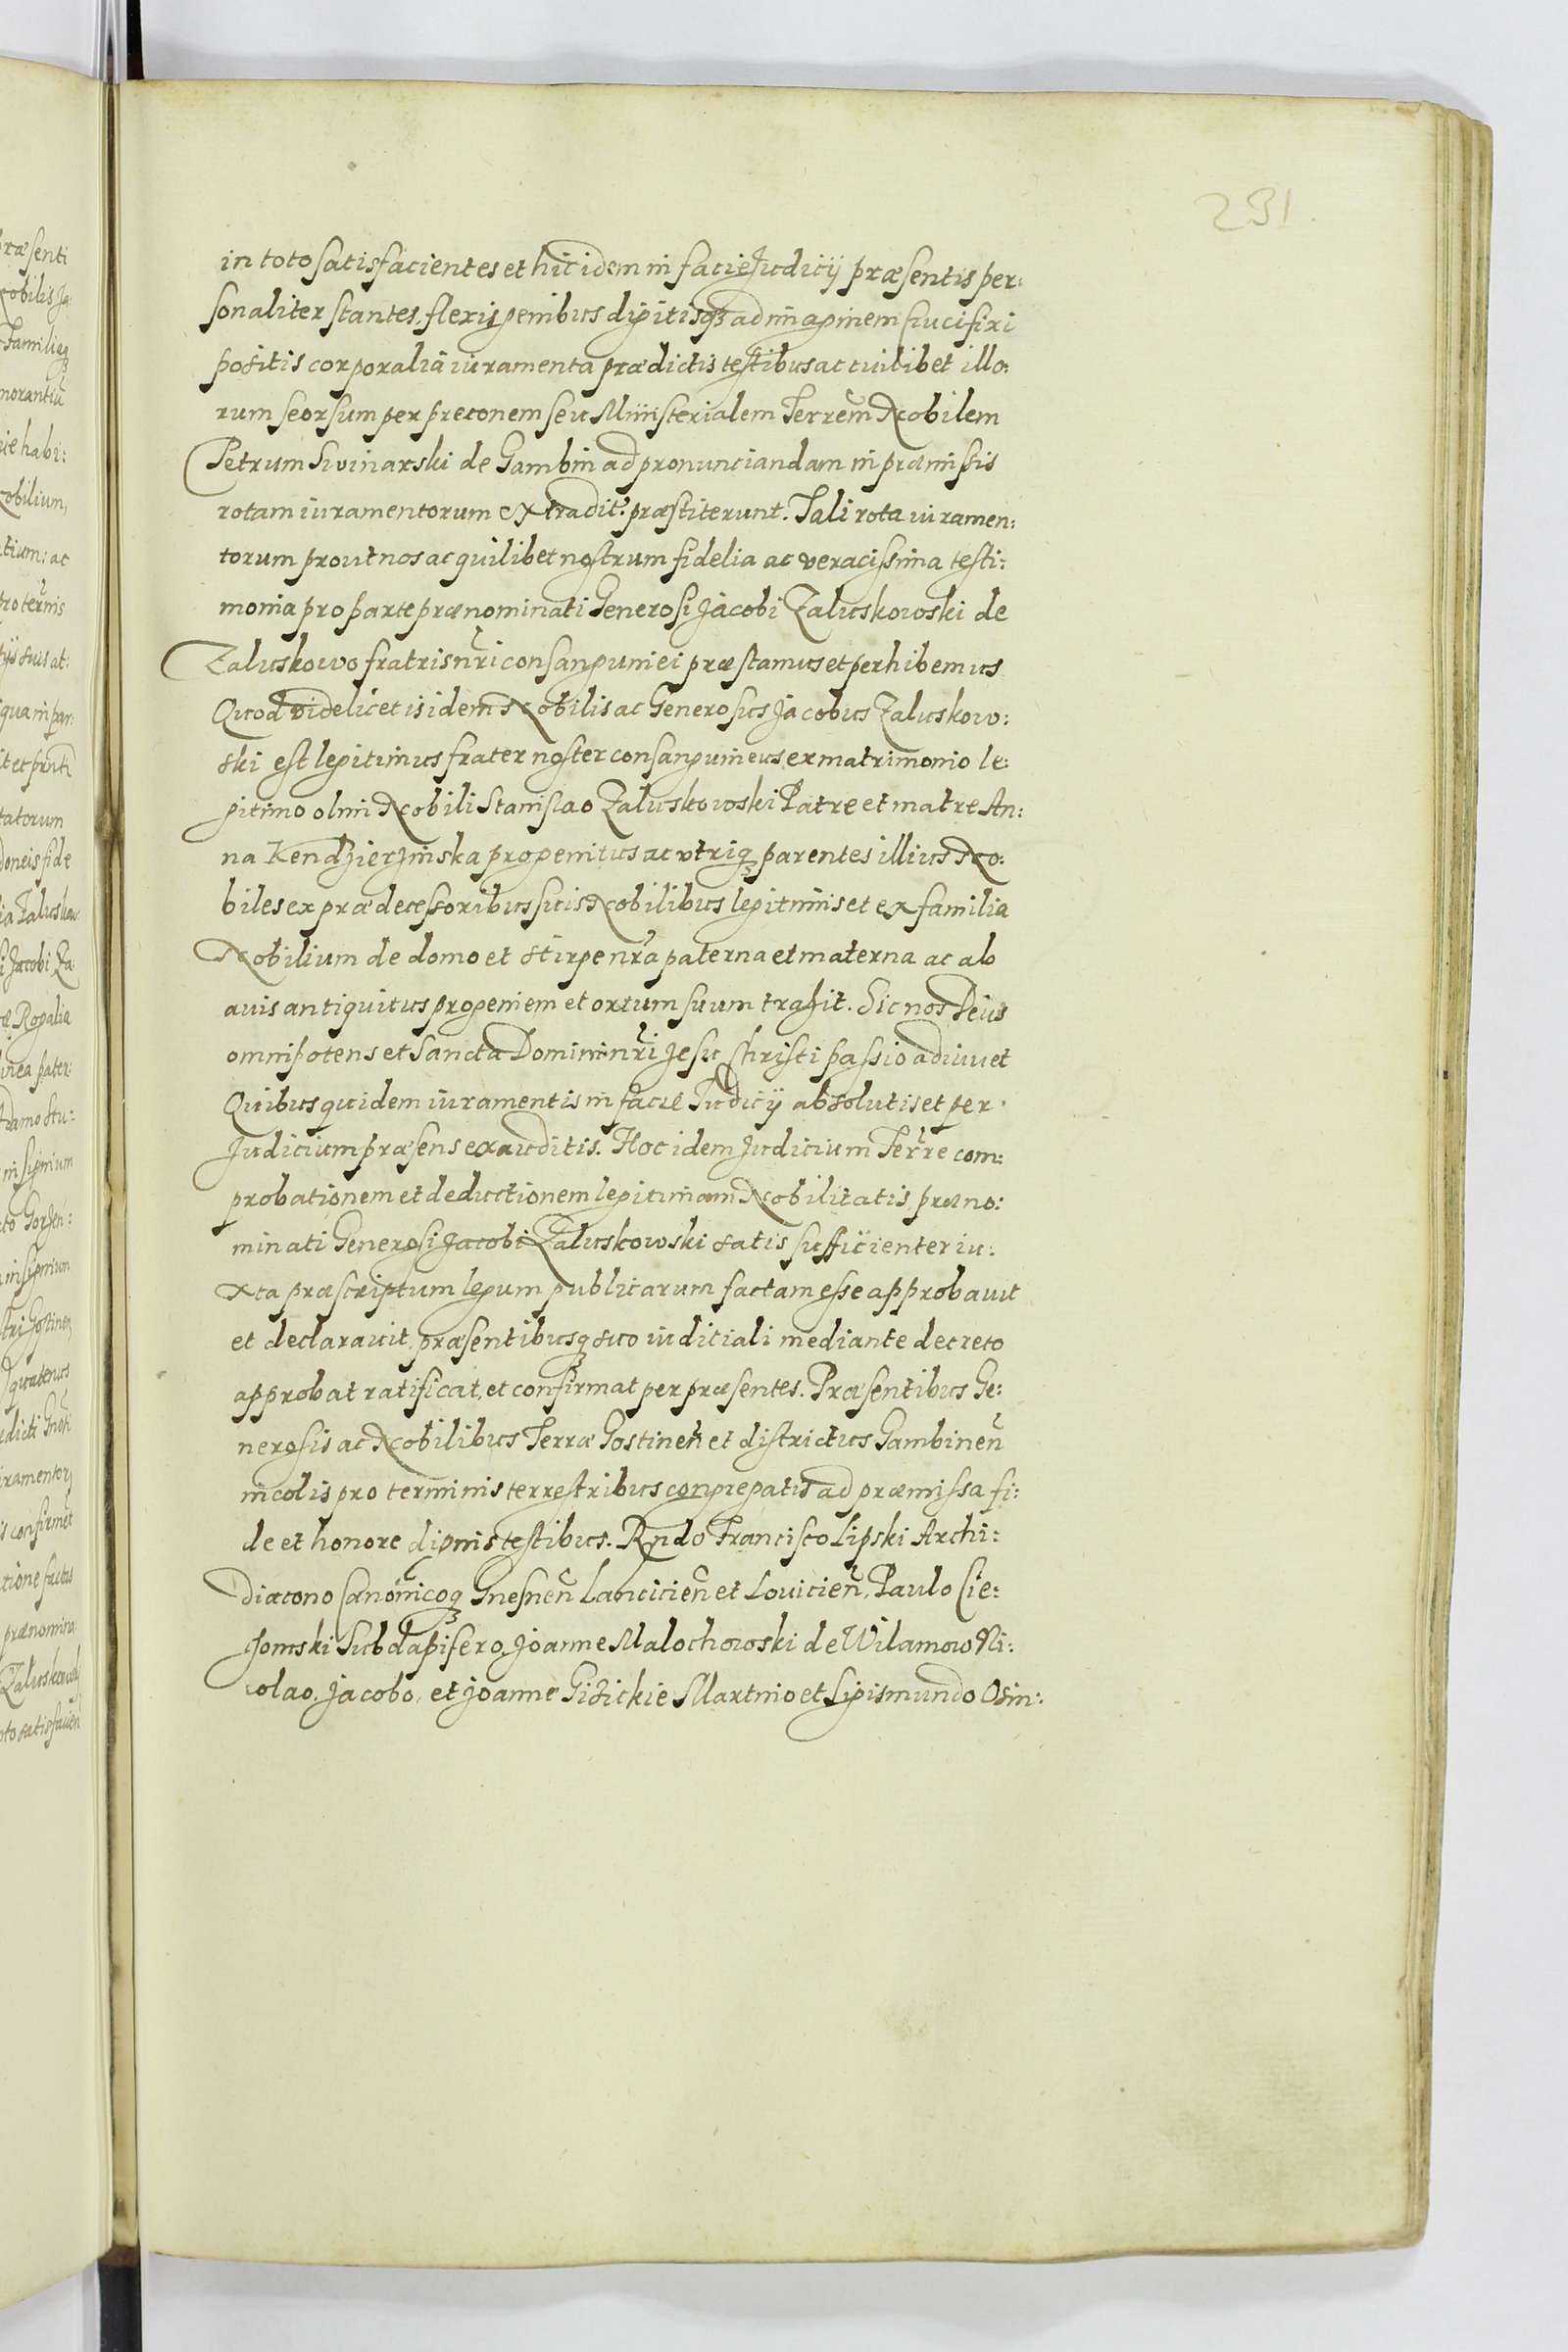 291.
in toto satisfacientes et hic idem in facie Judicij præsentis per:
sonaliter stantes, flexis genibus digitisqꝫ ad imaginem Crucifixi
positis corporalia iuramenta prædictis testibus ac cuilibet illo:
rum seorsum per preconem seu Ministerialem Terreñ Nobilem
Petrum Siwinarski de Gambin ad pronunciandam in præmissis
rotam iuramentorum extradit: præstiterunt. Tali rota iuramen:
torum prout nos ac quilibet nostrum fidelia ac veracissima testi:
monia pro parte prænominati Generosi Jacobi Zaluskowski de
Zaluskowo fratris nr̃i consanguinei præstamus et perhibemus
Quod videlicet is idem Nobilis ac Generosus Jacobus Zaluskow:
ski est legitimus frater noster consanguineus ex matrimonio le:
gitimo olim Nobili Stanislao Zaluskowski Patre et matre An:
na Kendzierzinska progenitus ac vtriqꝫ parentes illius No:
biles ex prædecessoribus suis Nobilibus legitimis et ex familia
Nobilium de domo et stirpe nr̃a paterna et materna ac ab
auis antiquitus progeniem et ortum suum trahit. Sic nos Deus
omnipotens et Sancta Domini nr̃i Jesu Christi passio adiuuet
Quibus quidem iuramentis in facie Judicij absolutis et per
Judicium præsens exauditis. Hoc idem Judicium Terr̃e com:
probationem et deductionem legitimam Nobilitatis præno:
minati Generosi Jacobi Zaluskowski satis sufficienter iu:
xta præscriptum legum publicarum factam esse approbauit
et declarauit, præsentibusqꝫ suo iudiciali mediante decreto
approbat ratificat, et confirmat per præsentes. Præsentibus Ge:
nerosis ac Nobilibus Terræ Gostineñ et districtus Gambineñ
incolis pro terminis terrestribus congregatis ad præmissa fi:
de et honore dignis testibus. Rndo Francisco Lipski Archi:
Diacono Canonicoqꝫ Gnesneñ Lancicieñ et Louicieñ, Paulo Cie:
Jomski Subdapifero, Joanne Malochowski de Wilamow Ni:
colao, Jacobo, et Joanne Gizickie Martino et Sigismundo Osin: